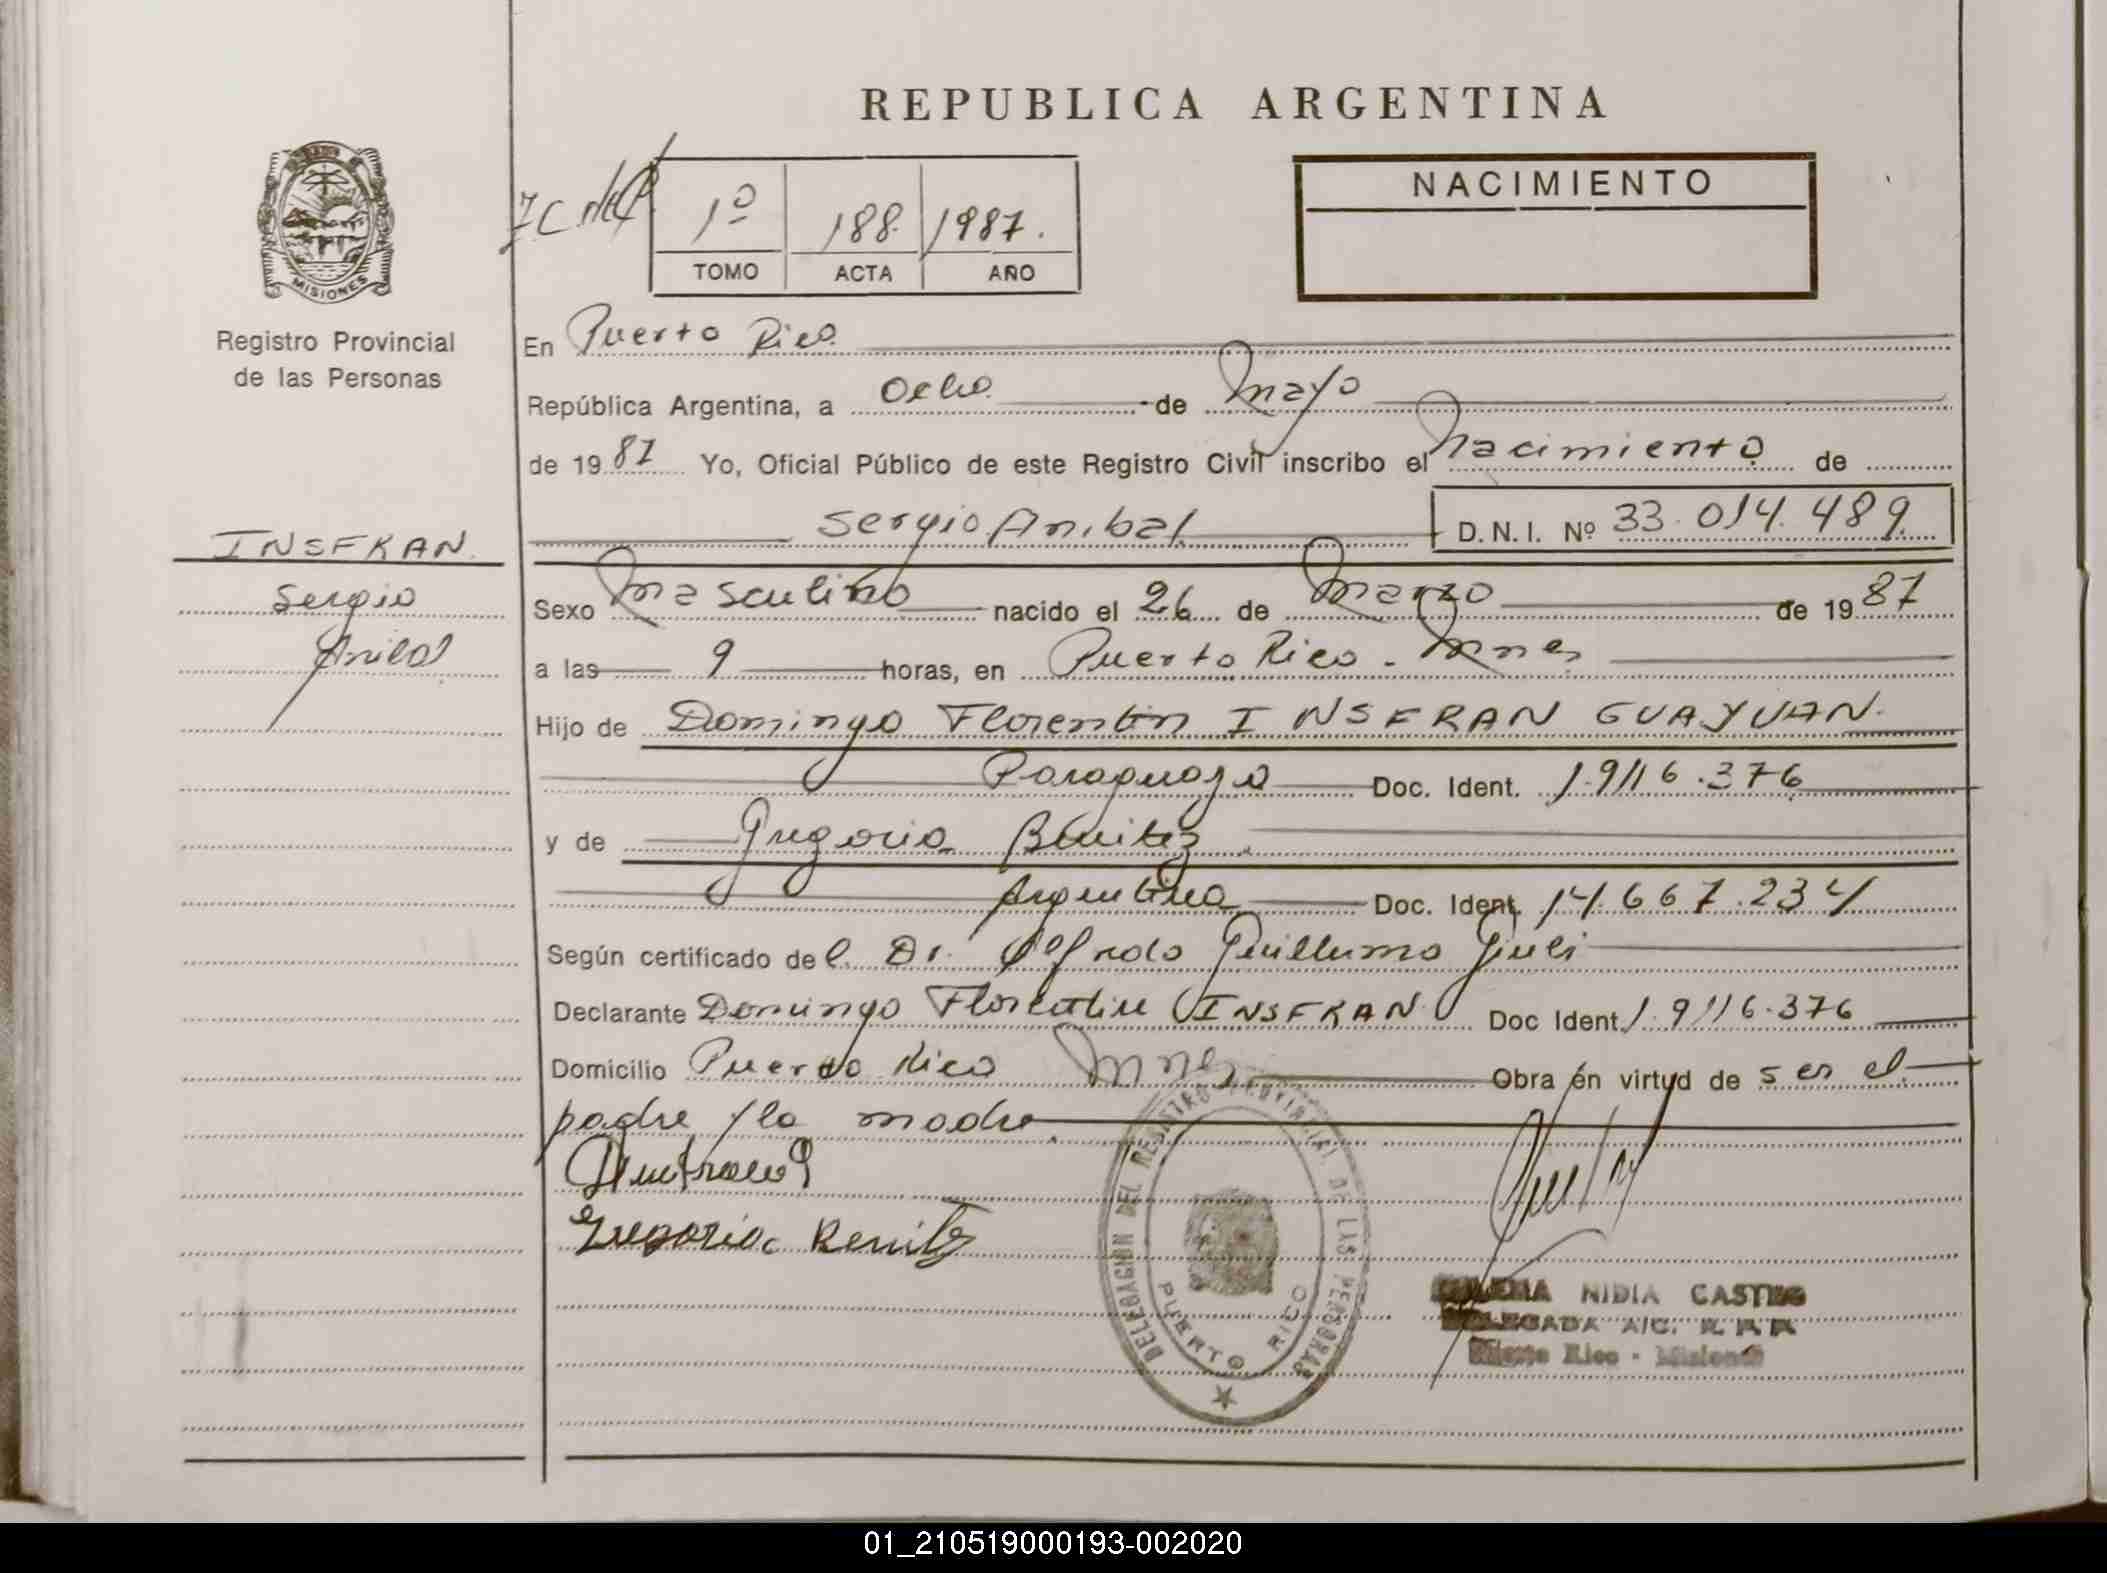 REPUBLICA ARGENTINA
1º 188. 1987.
TOMO ACTA AÑO
NACIMIENTO
MISIONES
Registro Provincial
de las Personas
En Puerto Rico.
República Argentina, a Ocho de Mayo
de 1987 Yo, Oficial Público de este Registro Civil inscribo el Nacimiento de
Sergio Anibal D.N.I. Nº 33.014.489.
INSFRAN.
Sergio
Anibal
Sexo Masculino nacido el 26 de Marzo de 1987
a las 9 horas, en Puerto Rico - Mnes
Hijo de Domingo Florentin INSFRAN GUAYUAN.
Paraguayo Doc. Ident. 1.9116.376
y de Gregoria Benitez
Argentina Doc. Ident. 14.667.234
Según certificado del Dr. Guillermo
Declarante Domingo Florentin INSFRAN Doc Ident. 1.9116.376
Domicilio Puerto Rico Mnes Obra en virtud de ser el
padre y la madre.
Gregoria Benitez
DELEGACION DEL REGISTRO PROVINCIAL DE LAS PERSONAS
PUERTO RICO
NIDIA CASTRO
DELEGADA A/C. R. P. P.
Puerto Rico - Misiones
01_210519000193-002020